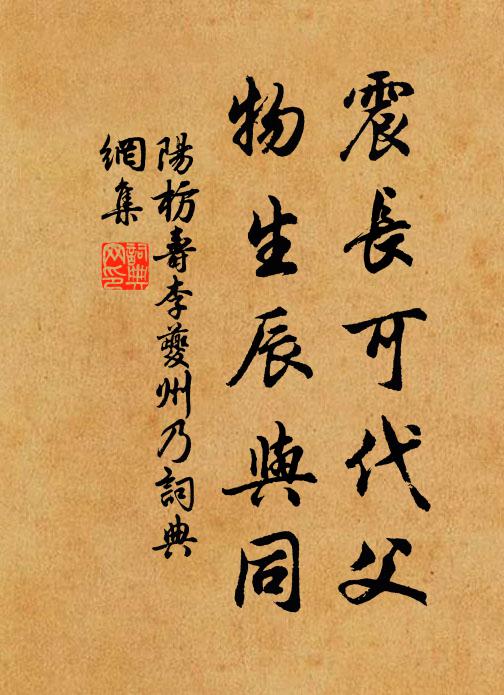 震長可代父
物生辰與同
陽枋壽李夔州乃詞典
網集
詞典
网印